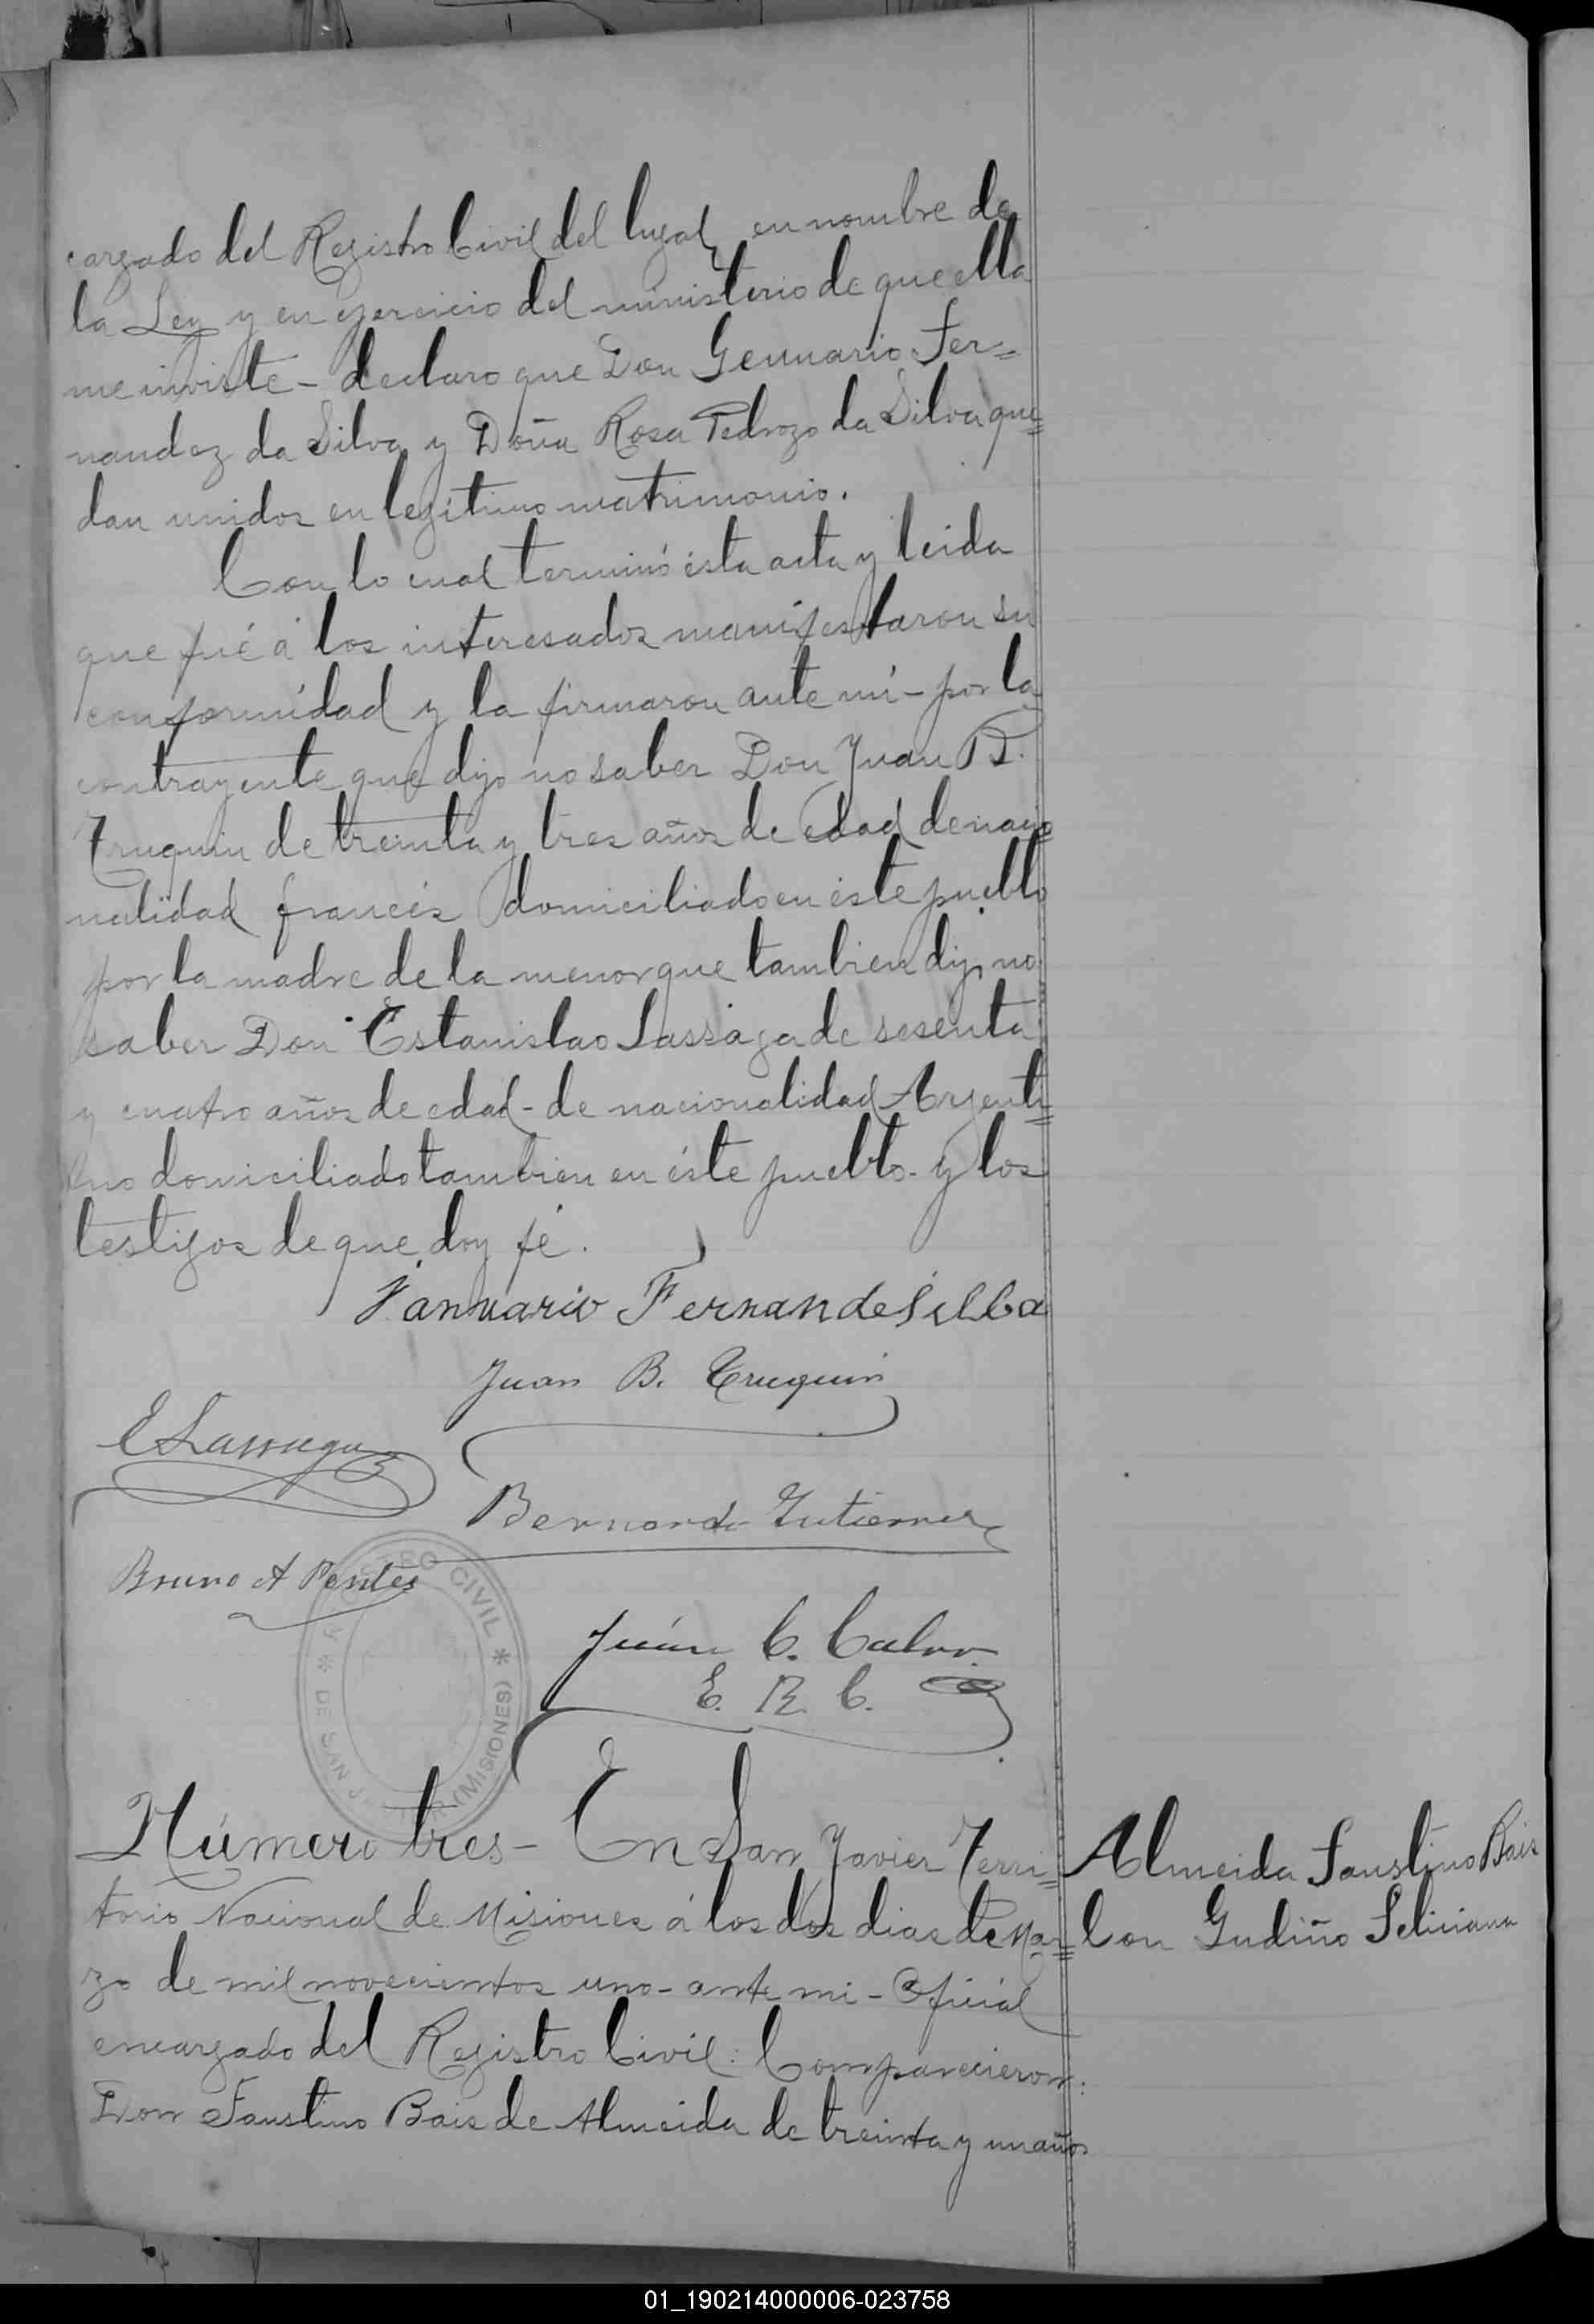 cargado del Registro Civil del lugar, en nombre de
la Ley y en ejercicio del ministerio de que ella
me inviste - declaro que Don Genuario Fer=
nandez da Silva y Doña Rosa Pedrozo da Silva que=
dan unidos en legítimo matrimonio.
Con lo cual terminó ésta acta y leida
que fué á los interesados manifestaron su
conformidad y la firmaron ante mí - por la
contrayente que dijo no saber Don Juan B.
Truquin de treinta y tres años de edad de nacio
nalidad francés domiciliado en éste pueblo
por la madre de la menor que tambien dijo no
saber Don Estanislao Lassaga de sesenta
y cuatro años de edad - de nacionalidad Argenti=
no domiciliado tambien en éste pueblo - y los
testigos de que doy fé.
Januario Fernandes silba
Juan B. Truquin
E Lassaga
Bernardo Gutierrez
Bruno A Pontes
REGISTRO CIVIL * (MISIONES)
* DE SAN
Juán C. Calvo
E. R. C.
Número tres - En San Javier Terri=
Almeida Faustino Bais
torio Nacional de Misiones á los dos dias de Mar=
Con Gudiño Feliciana
zo de mil novecientos uno - ante mi - Oficial
encargado del Registro Civil: Comparecieron:
Don Faustino Bais de Almeida de treinta y un años
01_190214000006-023758